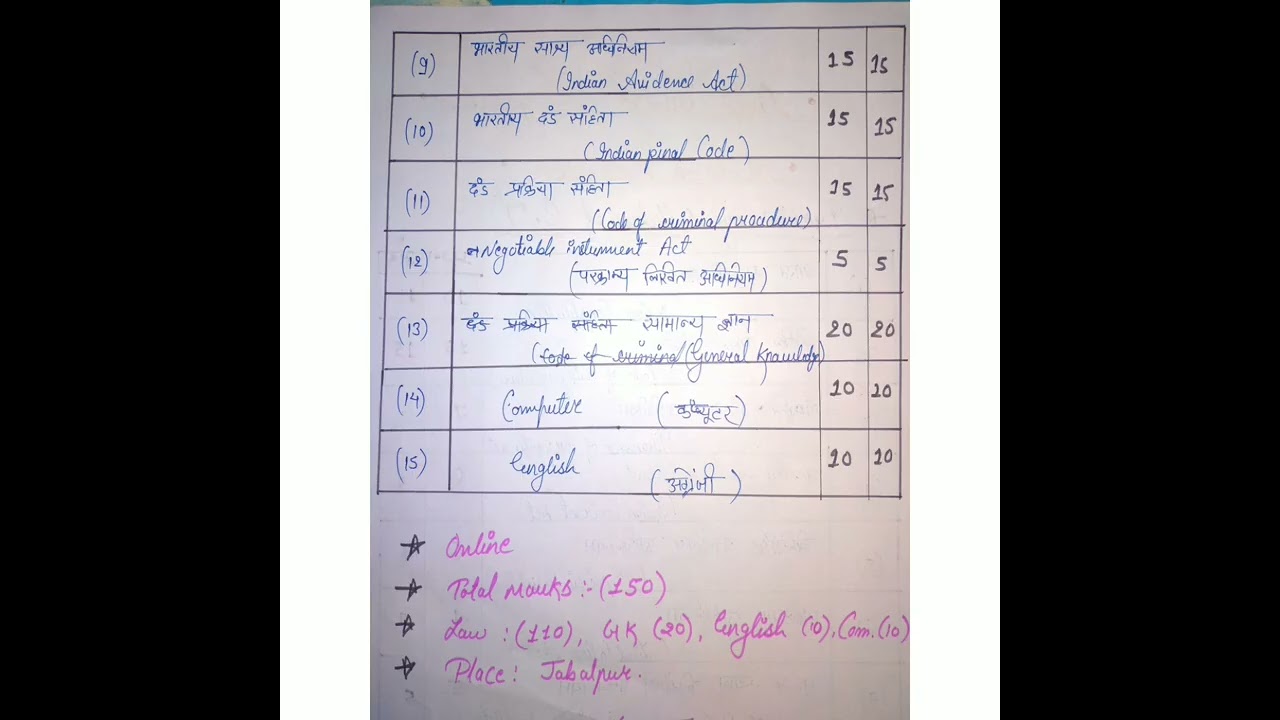 (9) भारतीय साक्ष्य अधिनियम 15 15
(Indian Avidence Act)
(10) भारतीय दंड संहिता 15 15
(Indian pinal Code)
(11) दंड प्रक्रिया संहिता 15 15
(Code of criminal procedure)
(12) Negotiable instument Act 5 5
(परक्राम्य लिखित अधिनियम)
(13) दंड प्रक्रिया संहिता सामान्य ज्ञान 20 20
(Code of criminal (General Knowledge)
(14) Computer (कंप्यूटर) 10 10
(15) English (अंग्रेजी) 10 10
Online
Total marks :- (150)
Law : (110), GK (20), English (10), Com. (10)
Place : Jabalpur.